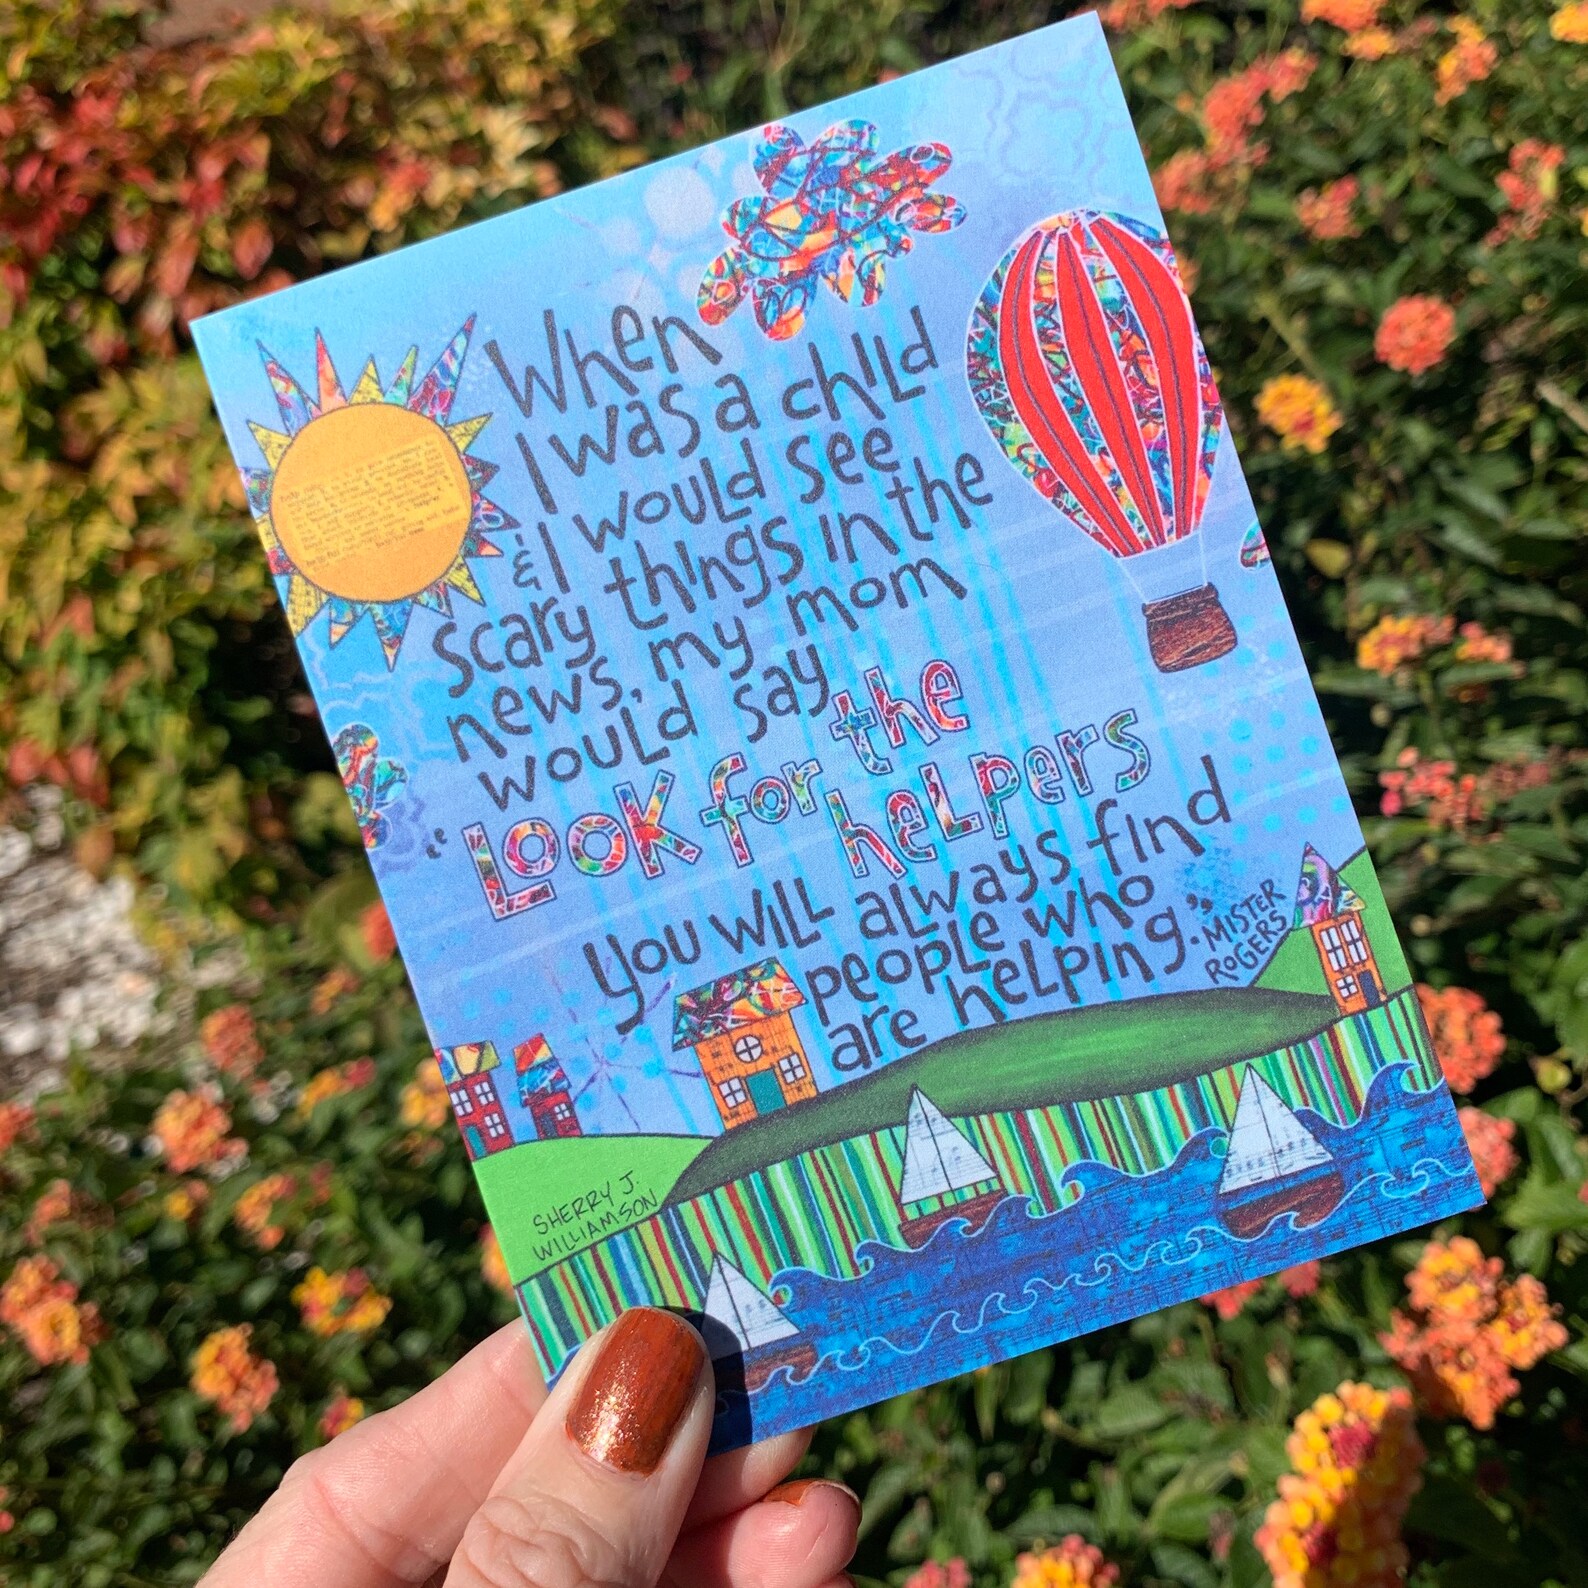 When
I was a child
& I would see
scary things in the
news, my mom
would say
"Look for the
helpers
you will always find
people who
are helping."
MISTER
ROGERS
SHERRY J.
WILLIAMSON